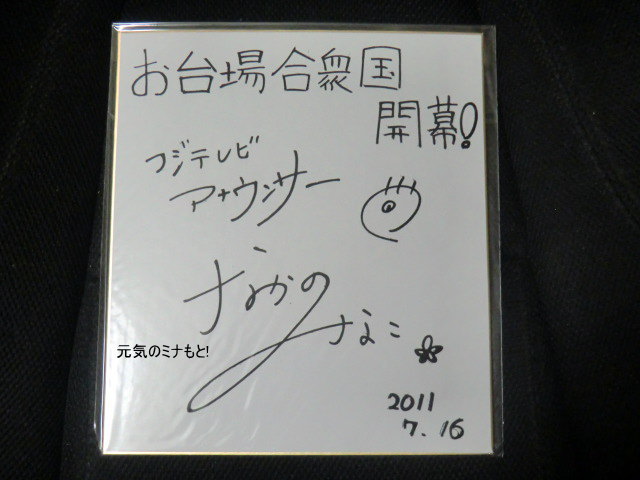 お台場合衆国
開幕!
フジテレビ
アナウンサー
なかの
みなこ
元気のミナもと!
2011
7.16